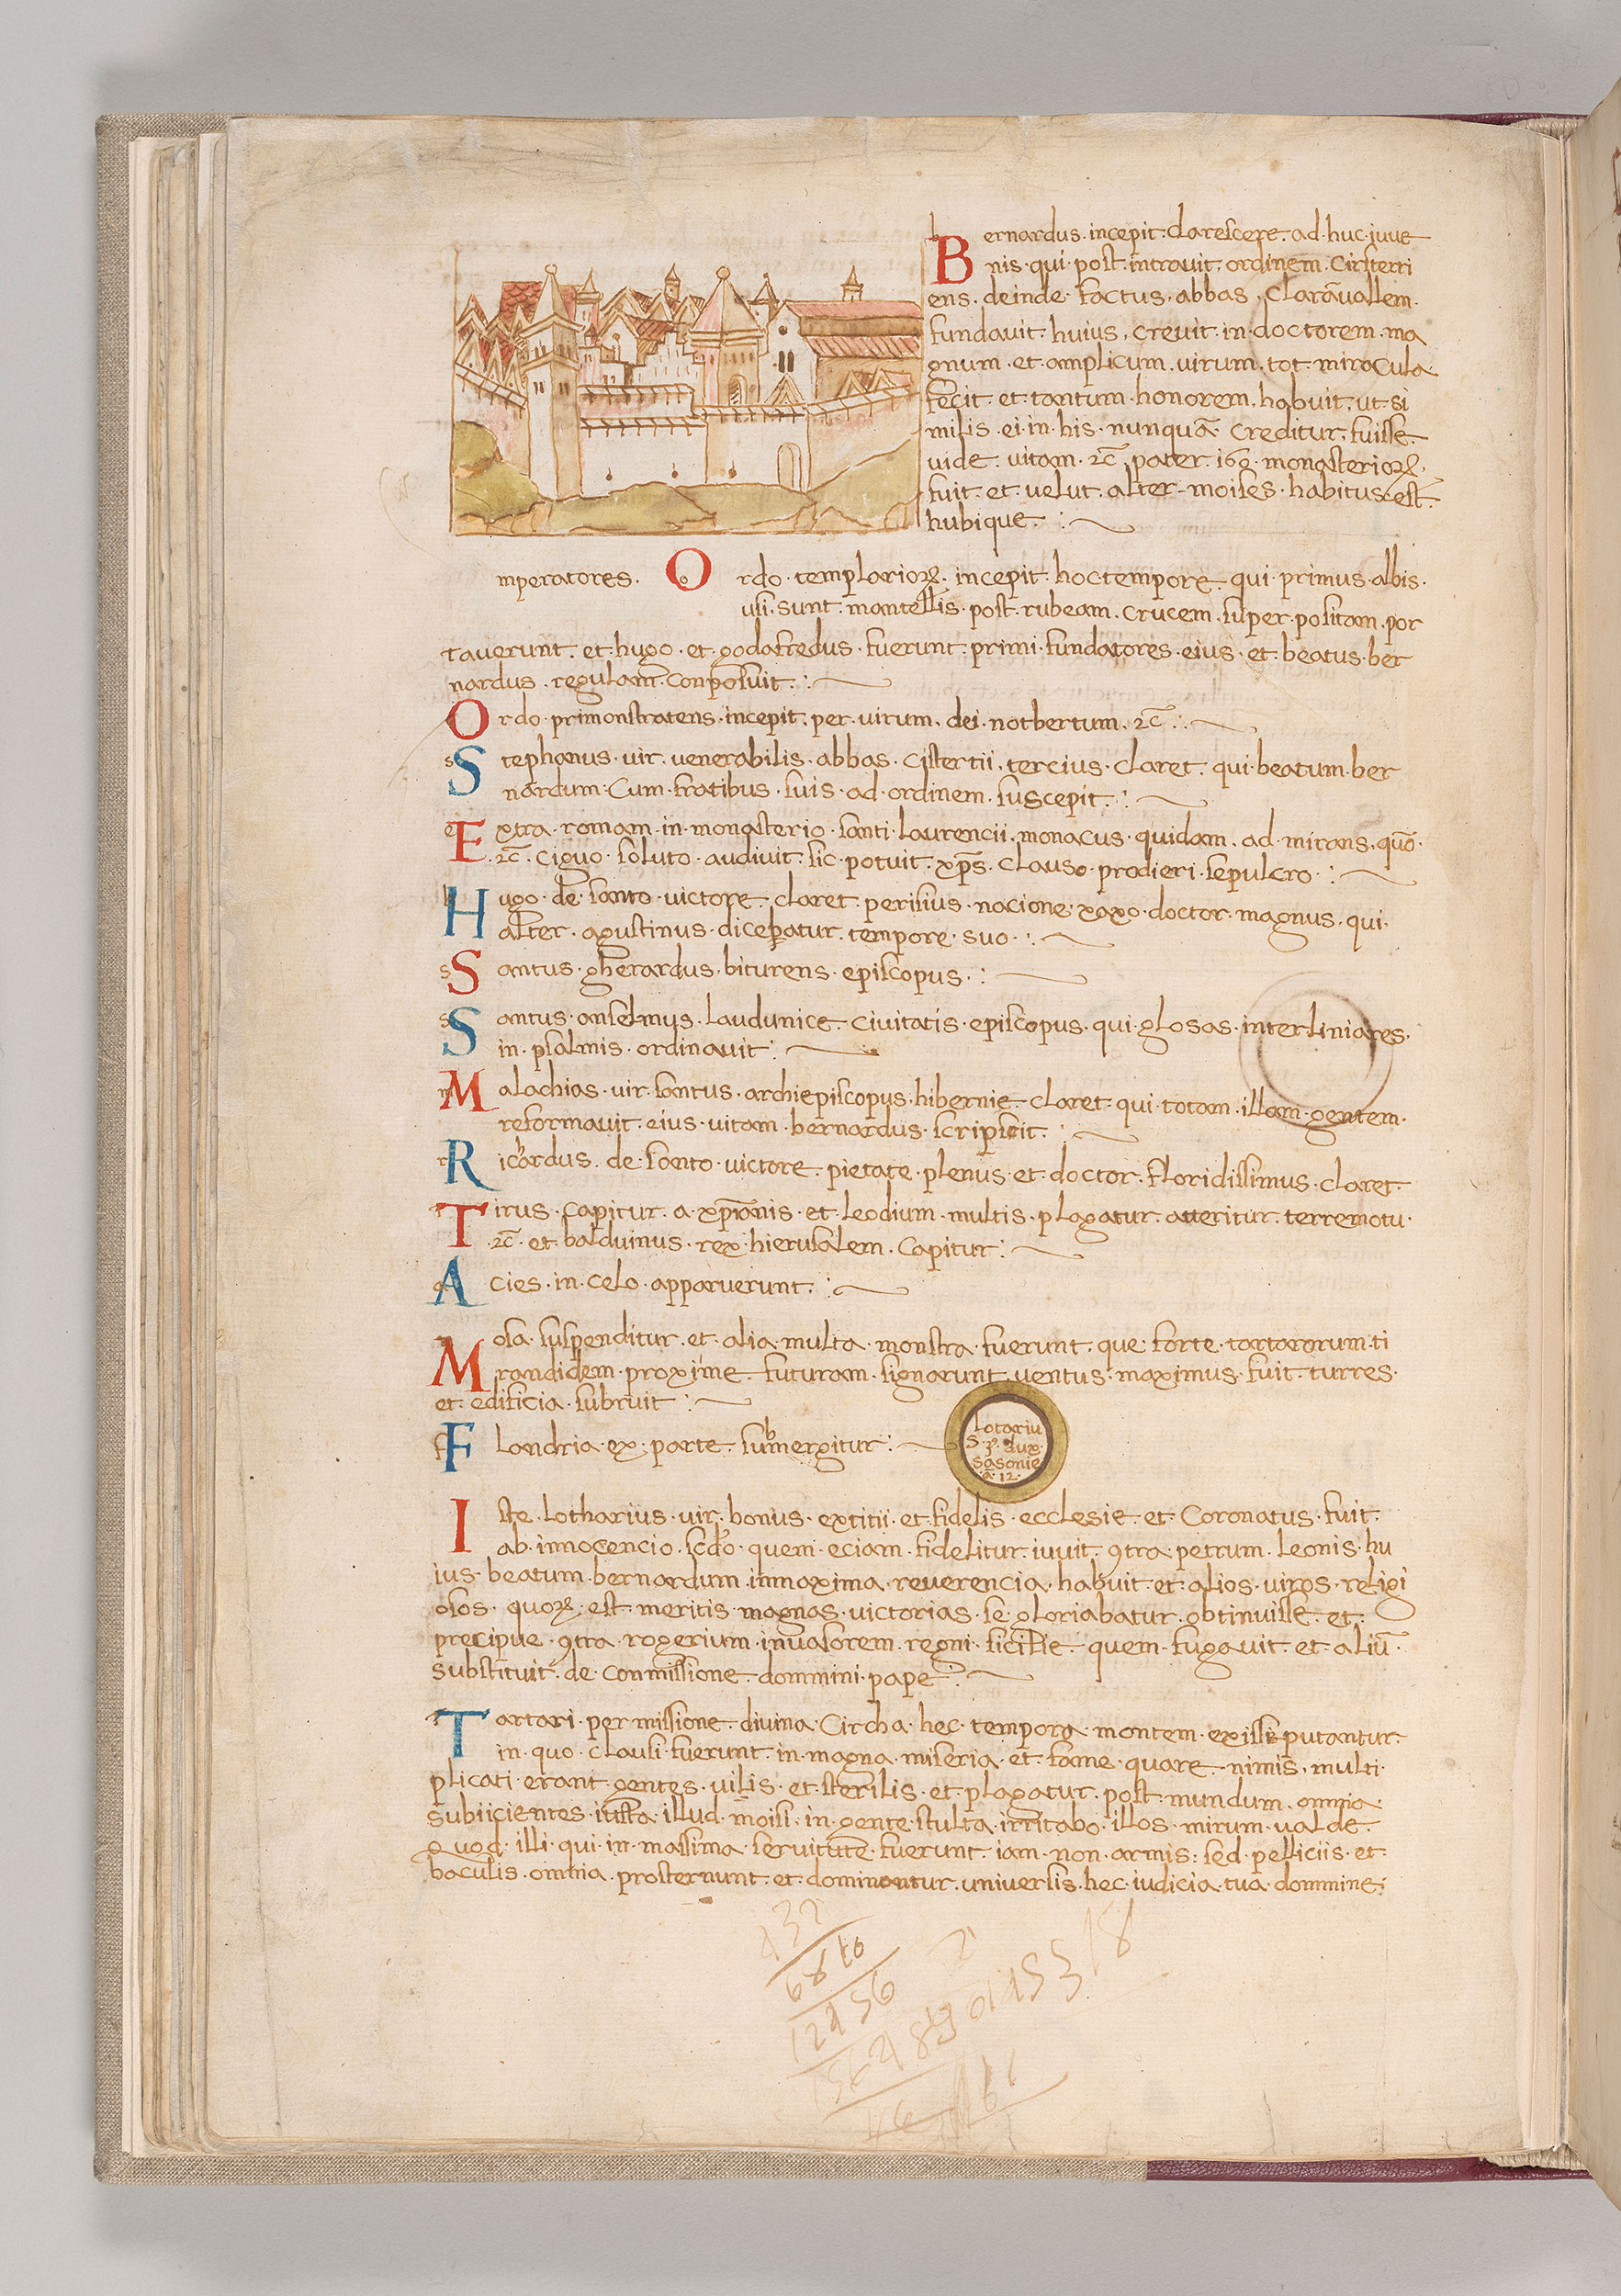 Bernardus · incepit · clarescere · ad · huc · iuue
nis · qui · post · intrauit · ordinem · Cirsterri
ens · deinde · factus · abbas · Clarāuallem ·
fundauit · huius · creuit · in · doctorem · ma
gnum · et · amplicum · uirum · tot · miracula
fecit · et · tantum · honorem · habuit · ut · si
milis · ei · in · his · nunquā · creditur · fuisse
uide · uitam · ⁊c̄ · pater · 160 · monasterioꝝ ·
fuit · et · uelut · alter · moises · habitus · est ·
hubique ·
mperatores · Ordo · templarioꝝ · incepit · hoc tempore · qui · primus · albis ·
usi · sunt · mantellis · post · rubeam · crucem · super · positam · por
tauerunt · et · hugo · et · godafredus · fuerunt · primi · fundatores · eius · et · beatus · ber
nardus · regulam · conposuit ·
Ordo · primonstratens · incepit · per · uirum · dei · notbertum · ⁊c̄ ·
Stephanus · uir · uenerabilis · abbas · cistertii · tercius · claret · qui · beatum · ber
nardum · Cum · fratibus · suis · ad · ordinem · suscepit ·
Extra · romam · in · monasterio · santi · laurencii · monacus · quidam · ad · mirans · quō ·
⁊c̄ · ciguo · soluto · audiuit · sic · potuit · xp̄s · clauso · prodieri · sepulcro ·
Hugo · de · santo · uictore · claret · perisius · nacione · xaxo · doctor · magnus · qui ·
alter · agustinus · dicebatur · tempore · suo ·
Santus · gherardus · biturens · episcopus ·
Santus · anselmus · laudunice · ciuitatis · episcopus · qui · glosas · inter · liniares ·
in · psalmis · ordinauit ·
Malachias · uir · santus · archiepiscopus · hibernie · claret · qui · totam · illam · gentem ·
reformauit · eius · uitam · bernardus · scripsit ·
Ricardus · de · santo · uictore · pietate · plenus · et · doctor · floridissimus · claret ·
Tirus · capitur · a · xp̄ianis · et · leodium · multis · plagatur · atteritur · terremotu ·
⁊c̄ · et · balduinus · rex · hierusalem · capitur ·
Acies · in · celo · apparuerunt ·
Mosa · suspenditur · et · alia · multa · monstra · fuerunt · que · forte · tartarorum · ti
randidem · proxime · futuram · signarunt · uentus · maximus · fuit · turres ·
et · edificia · subruit ·
Flandria · ex · parte · submergitur ·
Lotariu
s · 3º · dux ·
sasonie
· a · 12 ·
Iste · Lotharius · uir · bonus · extitii · et · fidelis · ecclesie · et · Coronatus · fuit ·
ab · innocencio · scdo · quem · eciam · fidelitur · iuuit · ꝯtra · petrum · leonis · hu
ius · beatum · bernardum · inmaxima · reuerencia · habuit · et · alios · uiros · religi
osos · quoꝝ · est · meritis · magnas · uictorias · se · gloriabatur · obtinuisse · et ·
precipue · ꝯtra · rogerium · inuasorem · regni · sicilie · quem · fugauit · et · aliū ·
substituit · de · conmissione · dommini · pape ·
Tartari · permissione · diuina · Circha · hec · tempora · montem · exisse · putantur ·
in · quo · clausi · fuerunt · in · magna · miseria · et · fame · quare · nimis · multi ·
plicati · erant · gentes · uilis · et · sterilis · et · plagatur · post · mundum · omnia ·
subiicientes · illud · moisi · in · gente · stulta · irritabo · illos · mirum · ualde ·
quod · illi · qui · in · massima · seruitute · fuerunt · iam · non · armis · sed · pelliciis · et ·
baculis · omnia · prosternunt · et · dominantur · uniuersis · hec · iudicia · tua · dommine ·